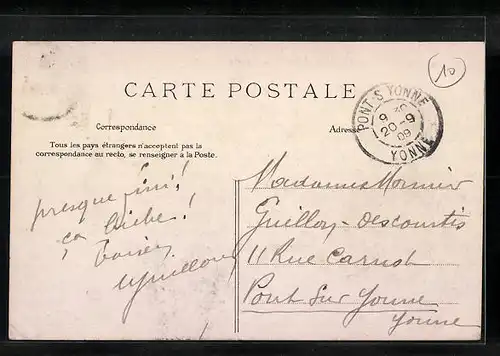 CARTE POSTALE
Correspondance
Adresse
Tous les pays étrangers n'acceptent pas la
correspondance au recto, se renseigner à la Poste.
PONT-S-YONNE
9 30
20-9
09
YONNE
10
presque fini!
ça biche!
Guillon
Madame Monnier
Guillon-Descourtis
11 Rue Carnot
Pont sur Yonne
Yonne